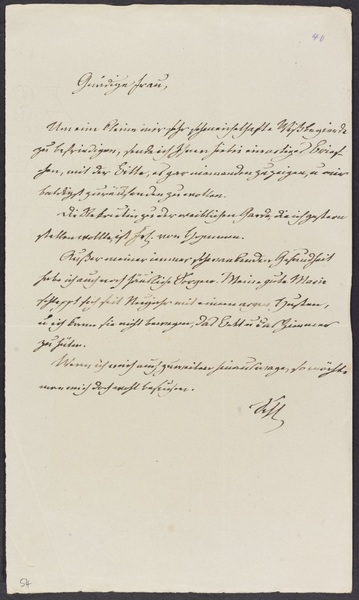 40
Gnädige Frau,
Um eine kleine mir sehr schmeichelhafte Wißbegierde
zu befriedigen, sende ich Ihnen hiebei ein artiges Brief
chen, mit der Bitte, es gar niemanden zu zeigen, u mir
baldigst zurücksenden zu wollen.
Die Rekrutin zu der weiblichen Garde, die ich gestern
stellen wollte, ist Frl. von
Außer meiner immer sehr wankenden Gesundheit
habe ich auch noch häusliche Sorgen. Meine gute Marie
schleppt sich seit Neujahr mit einem argen Husten,
u ich kann sie nicht bewegen, das Bett u das Zimmer
zu hüten.
Wenn ich mich auch zuweilen hinauswage, so möchte
man mich doch wohl besuchen.
54